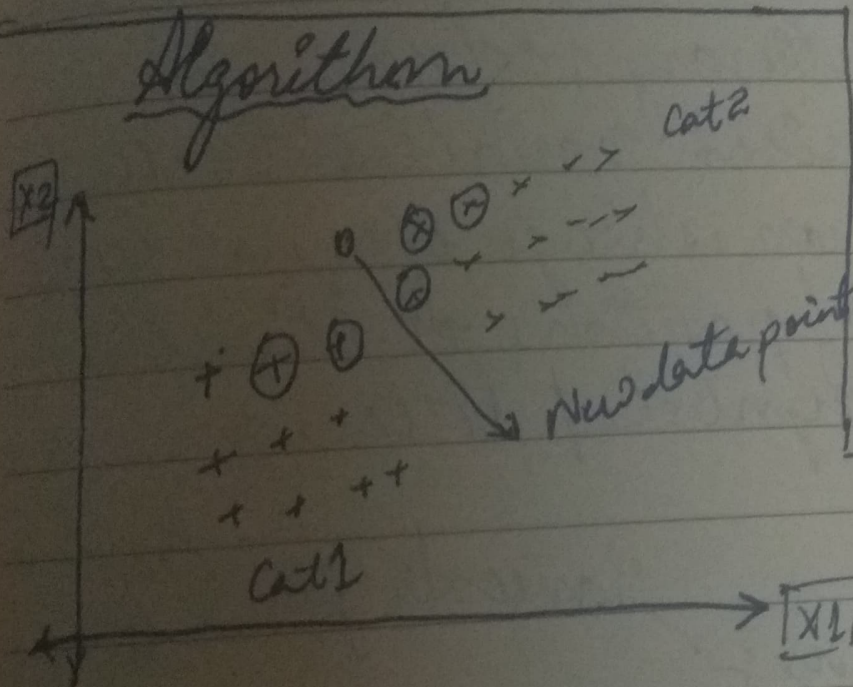 Algorithom
Cat2
X2
New data point
Cat1
X1